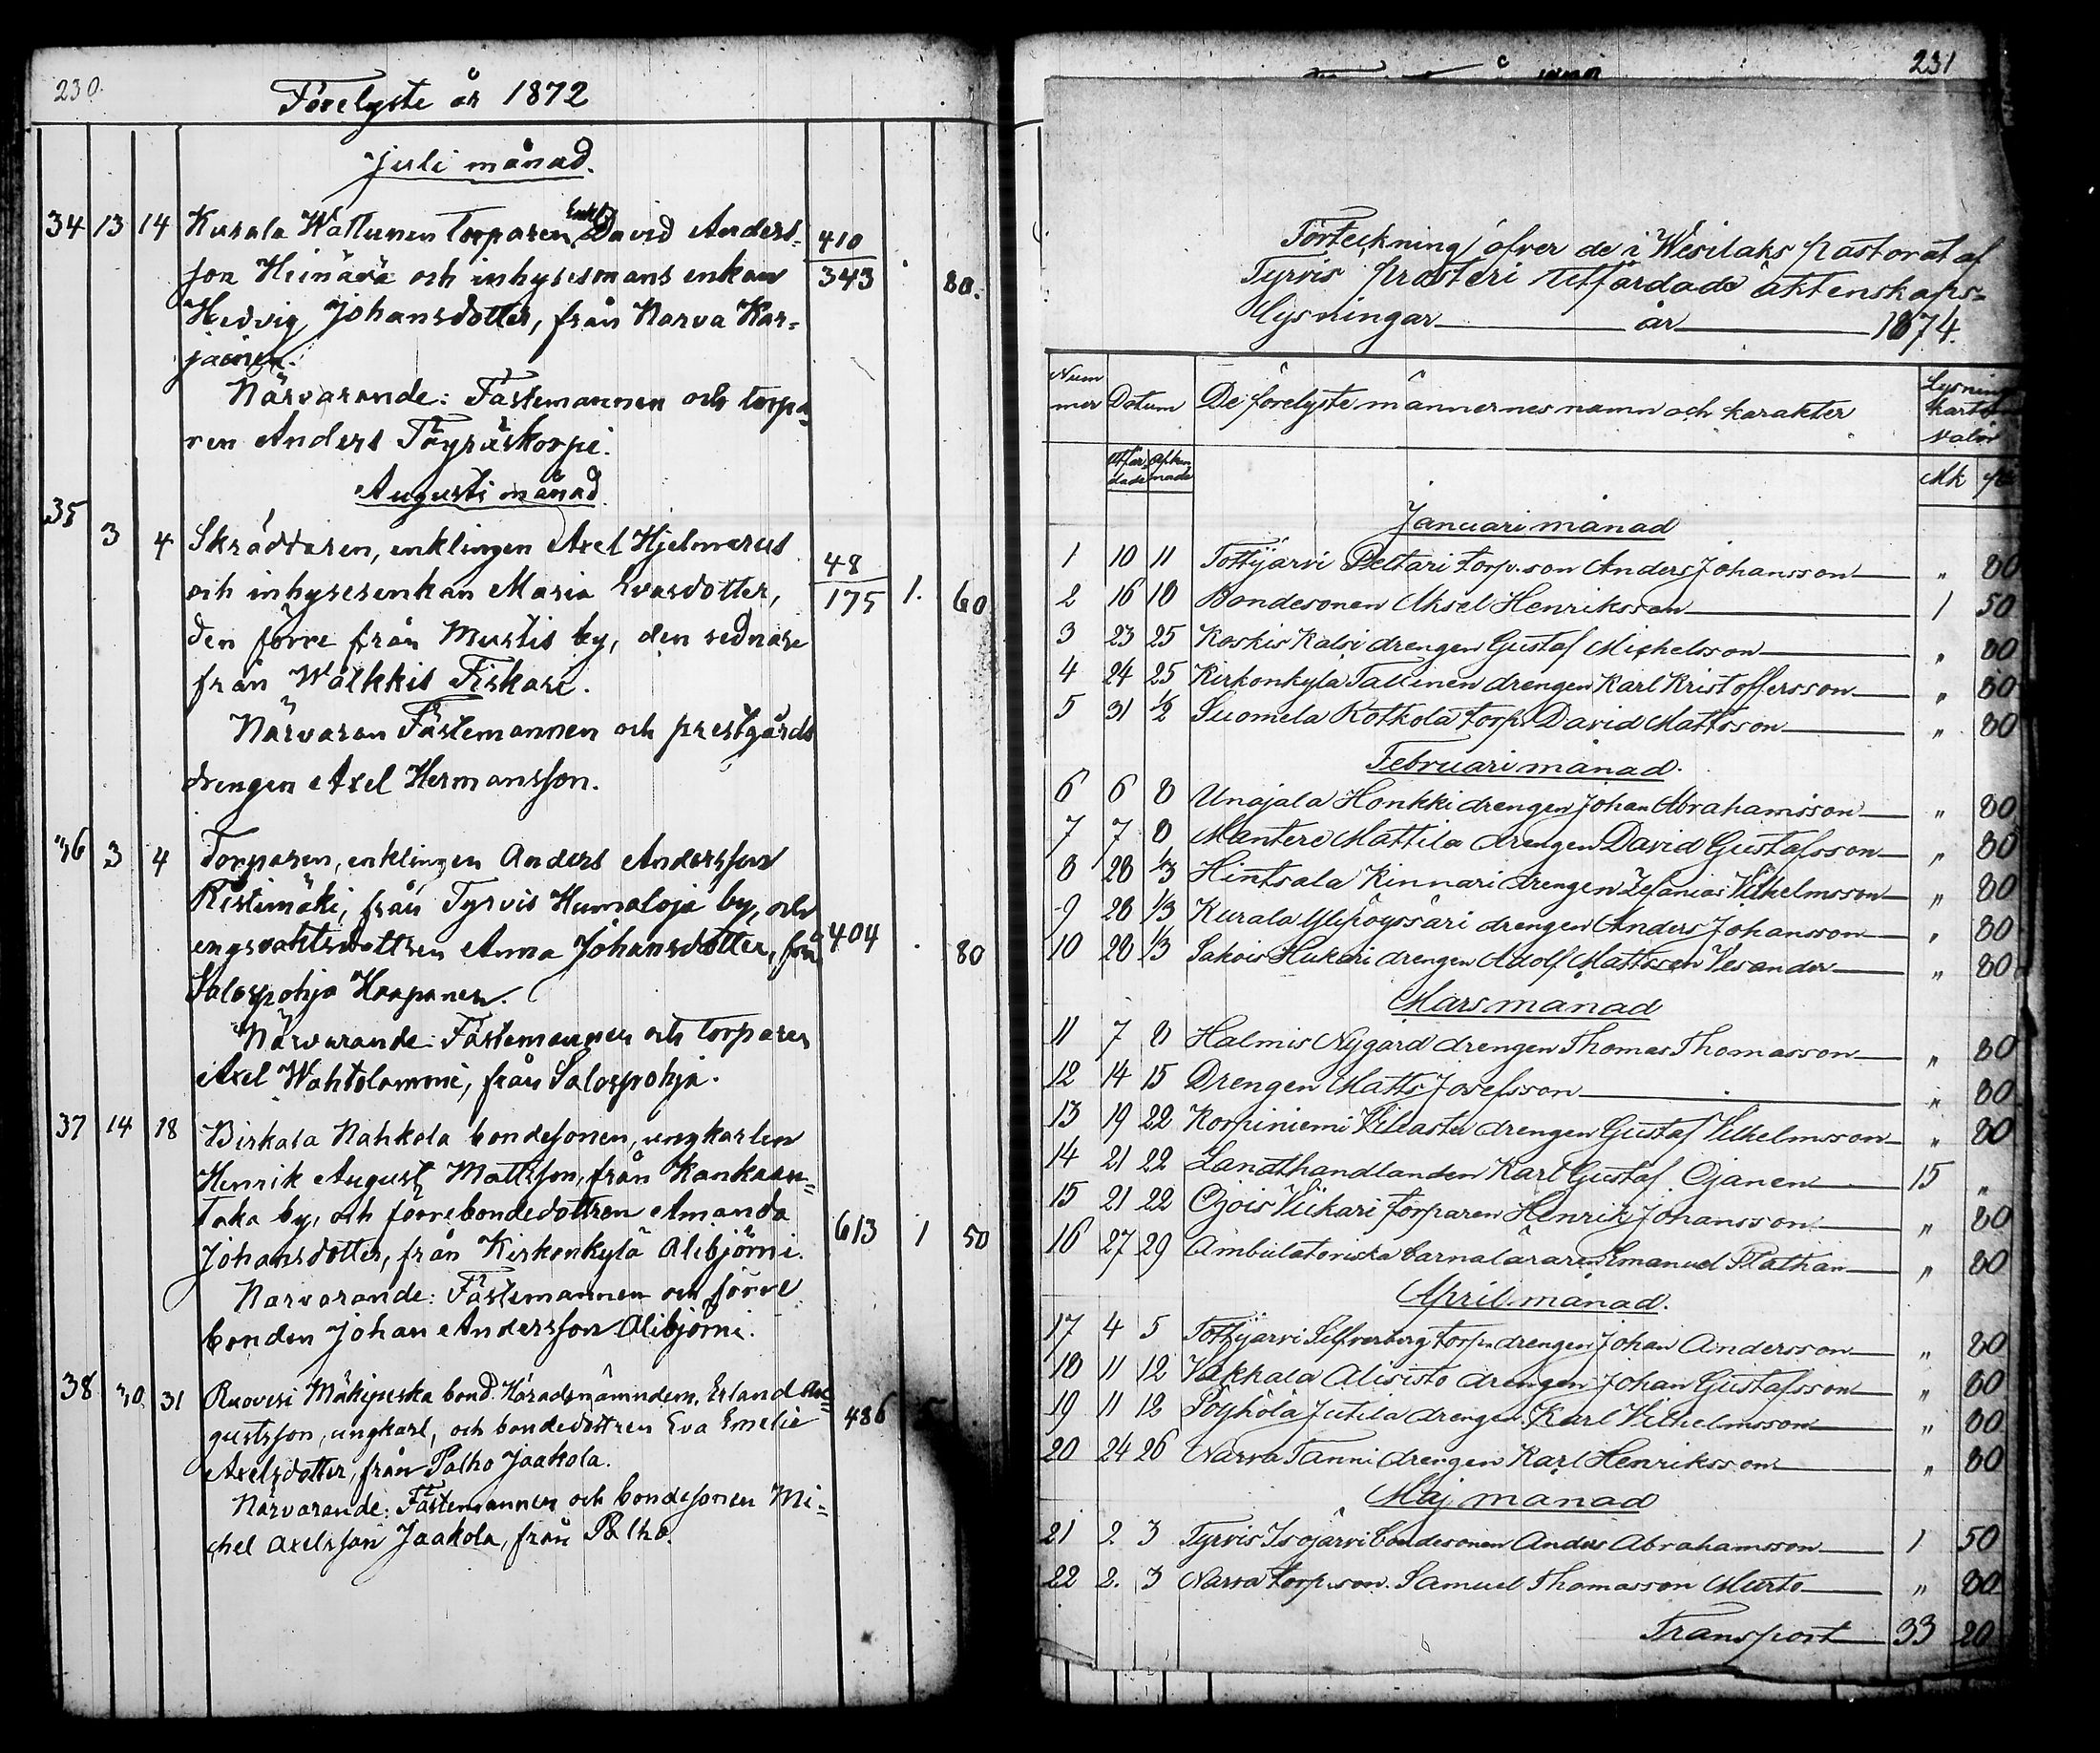 230.
Förelyste år 1872
Juli månad.
34 13 14 Kurala Wattunen torparen Enkl. David Anders-
son Heinävä och inhysesmans enkan 410 343 80.
Hedvig Johansdotter, från Narva Kar-
jainen.
Närvarande: Fästemannen och torpa-
ren Anders Töyräskorpi.
Augusti månad
35 3 4 Skräddaren, enklingen Axel Hjelmerus 48
och inhysesenkan Maria Evasdotter, 175 1. 60
den förre från Mustis by, den sednare
från Wälkkis Fiskari.
Närvaran Fästemannen och prestgårds
drengen Axel Hermansson.
36 3 4 Torparen, enklingen Anders Andersson
Ristimäki, från Tyrvis Humaloja by, och
engsvaktsdottren Anna Johansdotter, från 404 80
Salospohja Haapanen.
Närvarande: Fästemannen och torparen
Axel Wahtolammi, från Salospohja.
37 14 18 Birkala Nahkola bondesonen, ungkarlen
Henrik August Mattsson, från Kankaan-
taka by, och förre bondedottren Amanda
Johansdotter, från Kirkonkylä Alibjörni. 613 1 50
Närvarande: Fästemannen och förre
bonden Johan Andersson Alibjörni.
38 30. 31 Ruovesi Mäkipeska bond. Häradsnämndem. Erland Au-
gustsson, ungkarl, och bondedottren Eva Emelie 486
Axelsdotter, från Palho Jaakola.
Närvarande: Fästemannen och bondesonen Mi-
chel Axelsson Jaakola, från Palho.
231
Förteckning öfver de i Wesilaks pastorat af
Tyrvis prosteri utfärdade äktenskaps-
lysningar år 1874.
Num mer Datum De förelyste männernes namn och karakter Lysnings kartor valör
Utfär dade Afkun nade Mk
Januari månad
1 10 11 Tottijärvi Peltari torp.son Anders Johansson " 80
2 16 18 Bondesonen Aksel Henriksson 1 50
3 23 25 Koskis Kalsi drengen Gustaf Michelsson " 80
4 24 25 Kirkonkylä Tallinen drengen Karl Kristoffersson " 80
5 31 1/2 Suomela Kotkola torp. David Mattsson " 80
Februari månad.
6 6 8 Unajala Honkki drengen Johan Abrahamsson " 80
7 7 8 Mantere Mattila drengen David Gustafsson " 80
8 28 1/3 Hintsala Kinnari drengen Zefanias Vilhelmsson " 80
9 28 1/3 Kurala Ylipöyssäri drengen Anders Johansson " 80
10 28 1/3 Sakois Hukari drengen Adolf Mattsson Vesander " 80
Mars månad
11 7 8 Halmis Nygård drengen Thomas Thomasson " 80
12 14 15 Drengen Matts Josefsson " 80
13 19 22 Korpiniemi Vilkastu drengen Gustaf Vilhelmsson " 80
14 21 22 Landthandlanden Karl Gustaf Ojanen 15 "
15 21 22 Ojois Viikari torparen Henrik Johansson " 80
16 27 29 Ambulatoriska barnaläraren Emanuel Plathan " 80
April månad.
17 4 5 Tottijärvi Silfverberg torp. drengen Johan Andersson " 80
18 11 12 Vakkala Alisisto drengen Johan Gustafsson " 80
19 11 12 Pöyhölä Jutila drengen Karl Vilhelmsson " 80
20 24 26 Narva Tanni drengen Karl Henriksson " 80
Maj månad
21 2 3 Tyrvis Isojärvi bondesonen Anders Abrahamsson 1 50
22 2. 3 Narva torp.son. Samuel Thomasson Murto " 80
Transport 33 20